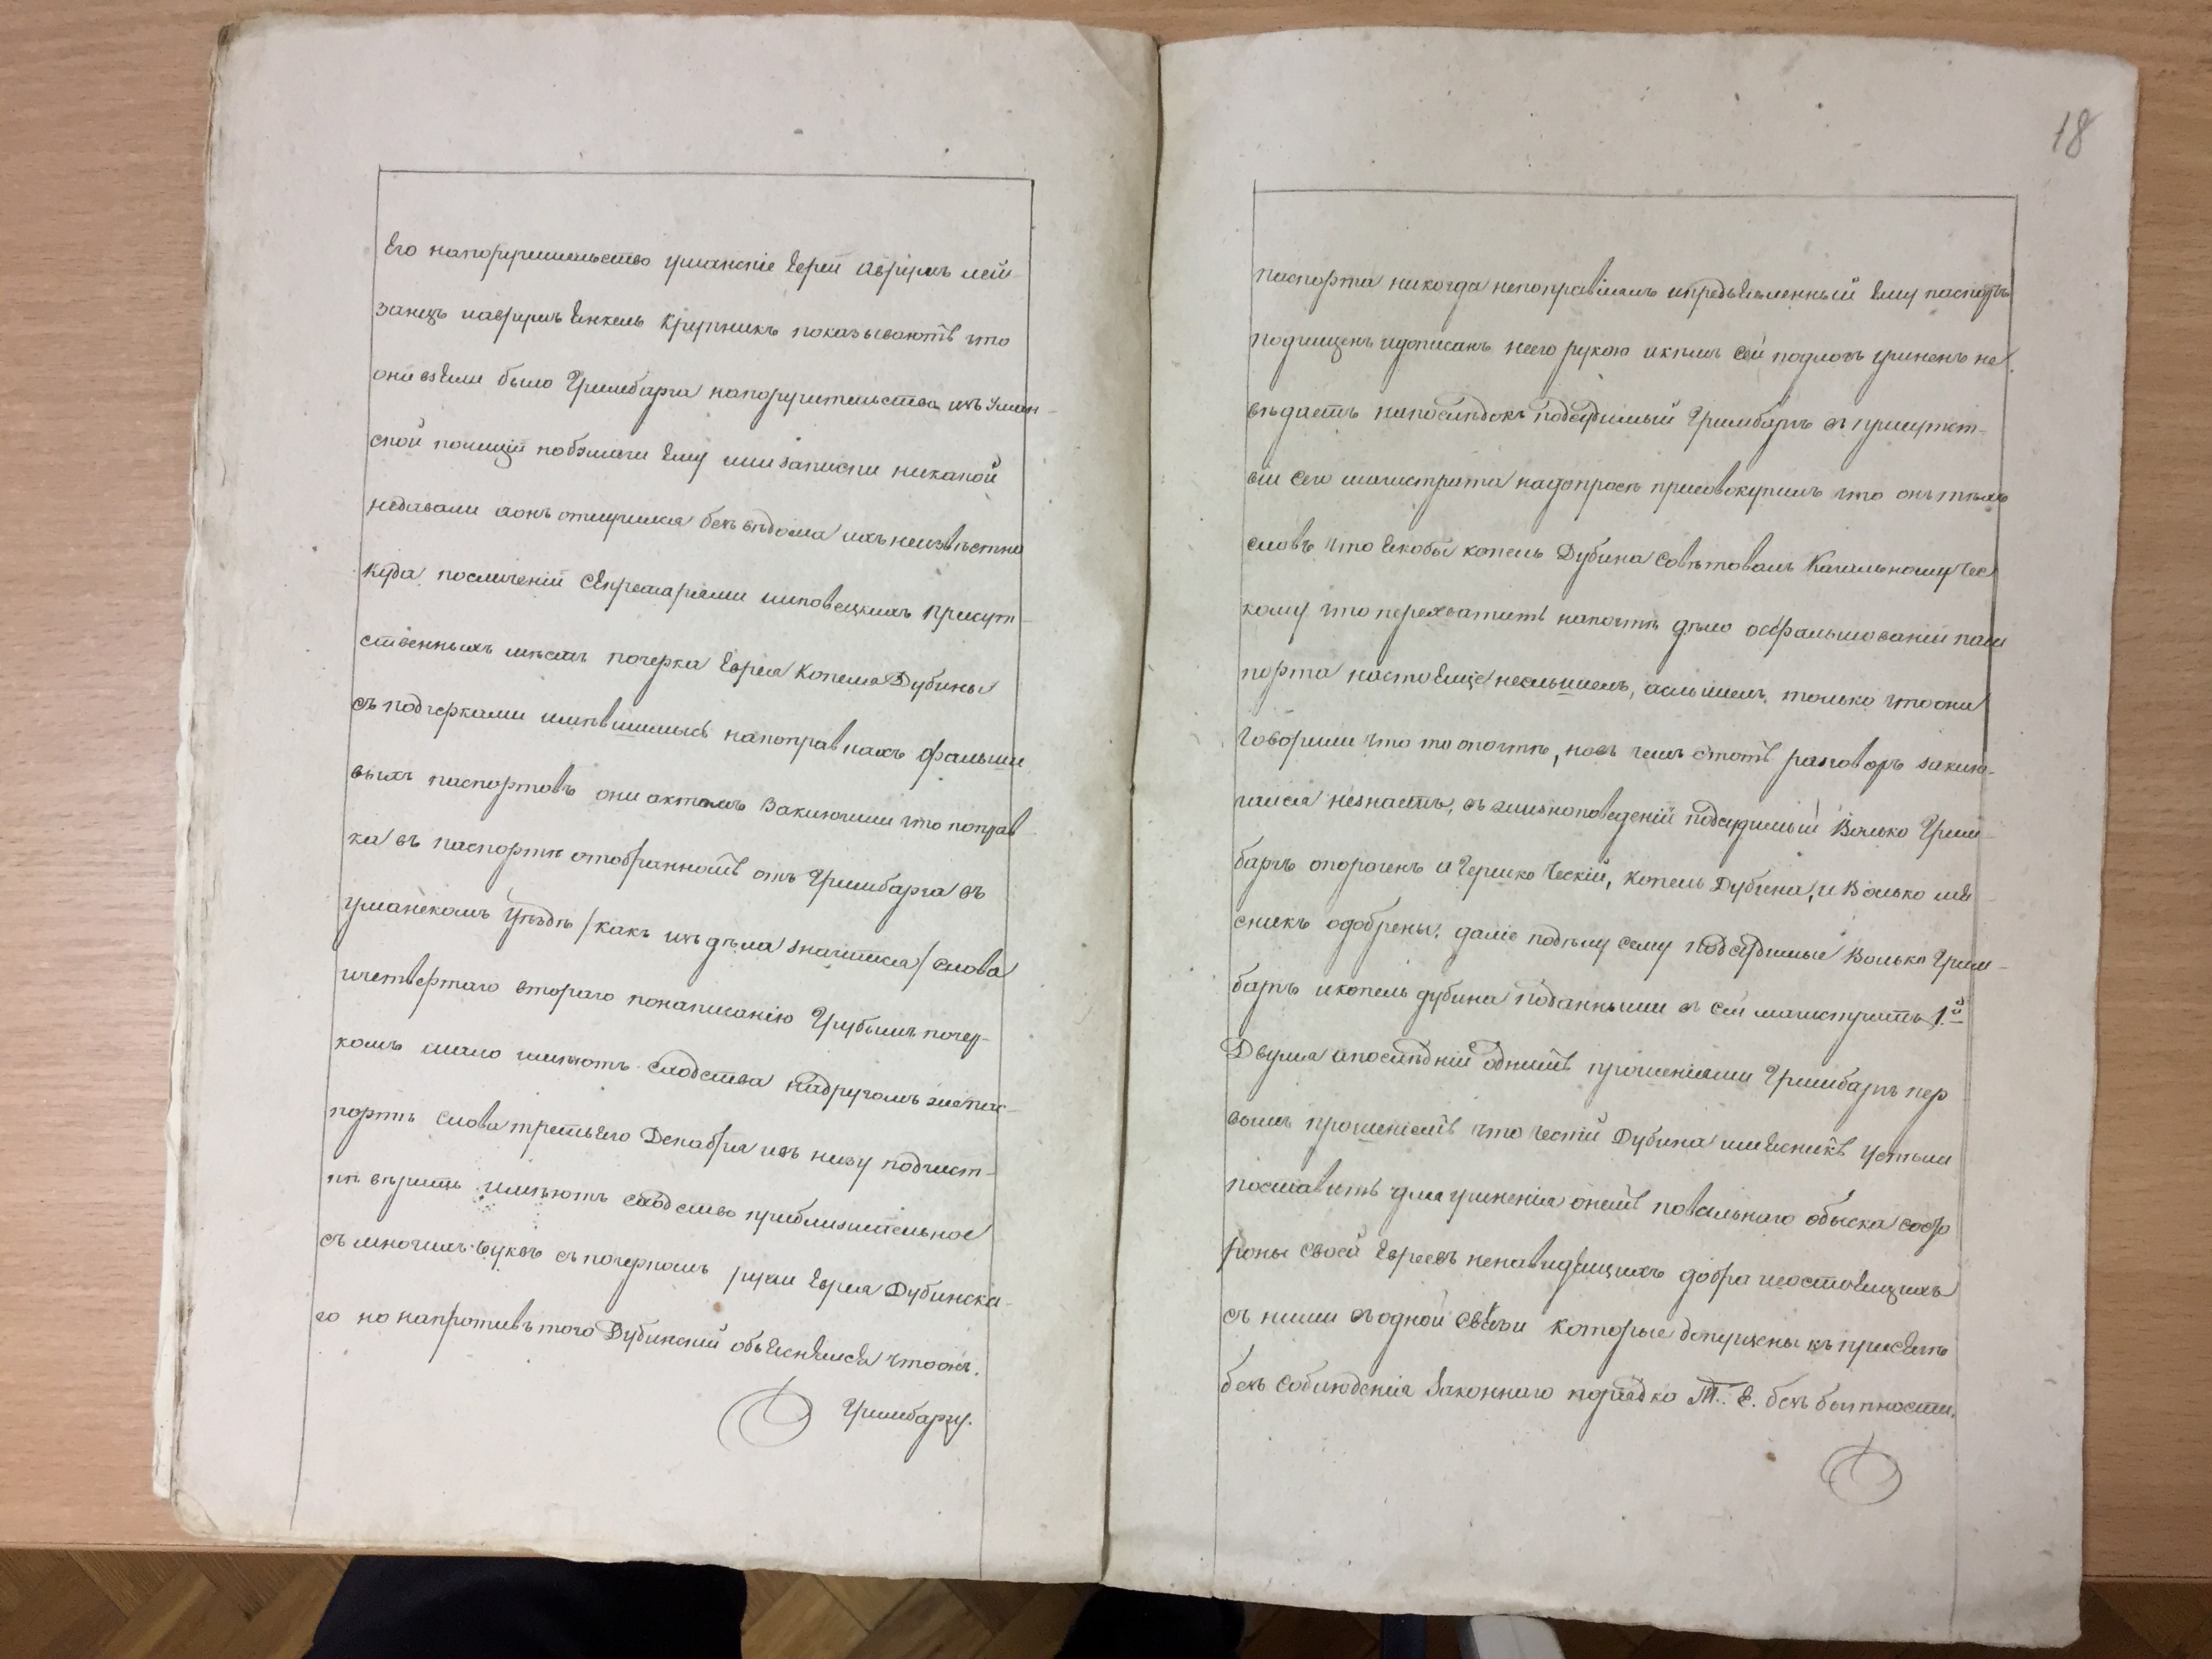 Его напоручительство уманскіе Евреи Аврумъ лей-
занцъ иаврумъ Енкель Крупникъ показываютъ что
они взЕли было Гринбарга напоручительства изъ Уман-
ской полиціи нобъмаги Ему или записки никакой
недавали аонъ отлучился безъ вѣдома ихъ неизвѣстно
куда. посличеніи СЕкретарями липовецкихъ Присут-
ственныхъ мѣстъ почерка Еврея Копеля Дубины
съ подчерками имѣвшимысь напоправкахъ фальши
выхъ паспортовъ они актомъ Заключили что поправ
ка въ паспортѣ отобранномъ отъ Гринбарга въ
уманскомъ Уѣздѣ /какъ изъ дѣла значится/ слова
ичетвертаго втораго понаписанію Грубымъ почер-
комъ мало имѣютъ сходства надругомъ же пас-
портѣ слова третьЕго Декабря изъ низу подчист-
имѣютъ сходство приблизительное
съ многихъ буквъ съ почеркомъ руки Еврея Дубинска-
го но напротивъ того Дубинскій объЕснЕлся что онъ.
Гринбаргу.
18
паспорта никогда непоправлялъ ипредъЕвленный Ему паспортъ
подчищенъ идописанъ неего рукою икѣмъ сей подлогъ учиненъ не
вѣдаетъ напослѣдокъ подсудимый Гринбаргъ въ присутст-
віи сего магистрата надопросѣ присовокупилъ что онъ тѣхъ
словъ что Екобы копель Дубина совѣтовалъ Кагальному Чес
кому что перехватить напочтѣ дѣло офальшованіи пас
порта настоЕще неслышелъ, аслышелъ только что они
Говорили что то опочтѣ, новъ чемъ Етотъ разговоръ заклю-
чался незнаетъ, въ жизноповеденіи подсудимый Волько Грин-
баргъ опороченъ и Гершко Ческій, Копель Дубина, и Волько мЕ
сникъ одобрены. даліе подѣлу сему подсудимые Волько Грин-
баргъ икопель дубина поданными въ сей магистратъ 1й
Двумя апослѣдній однимъ прошеніями Гринбаргъ пер
вымъ прошеніемъ что Ческій Дубина имЕсникъ успѣли
поставить для учиненія онымъ повальнаго обыска состо
роны своей Евреевъ ненавидящихъ добра исостоЕщихъ
съ ними въ одной свЕзи которые допущены къ присЕгѣ
безъ соблюденія Законнаго порядко Т. Е. безъ бытности.